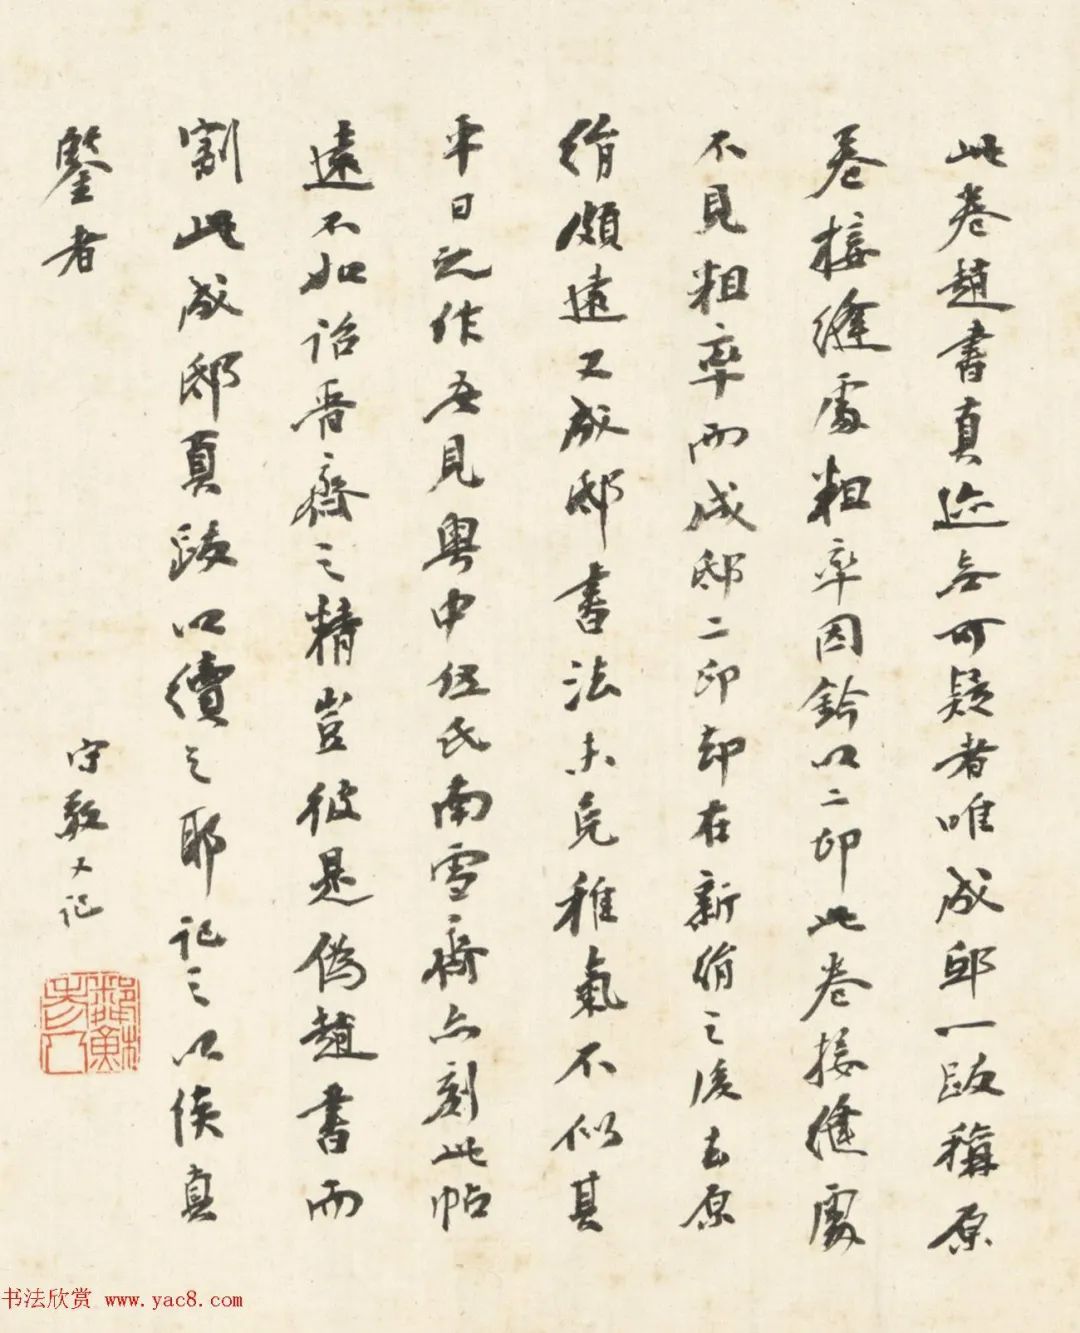 此卷趙書真迹無可疑者唯成邸一跋稱原
卷接縫處粗率因鈐以二印此卷接縫處
不見粗率而成邸二印却在新絹之後去原
絹頗遠又成邸書法未免稚氣不似其
平日之作吾見粤中伍氏南雪齋亦刻此帖
遠不如詒晋齋之精豈彼是偽趙書而
割此成邸真跋以價之耶記之以俟真
鑒者
守敬又記
鄰蘇老人
书法欣赏 www.yac8.com